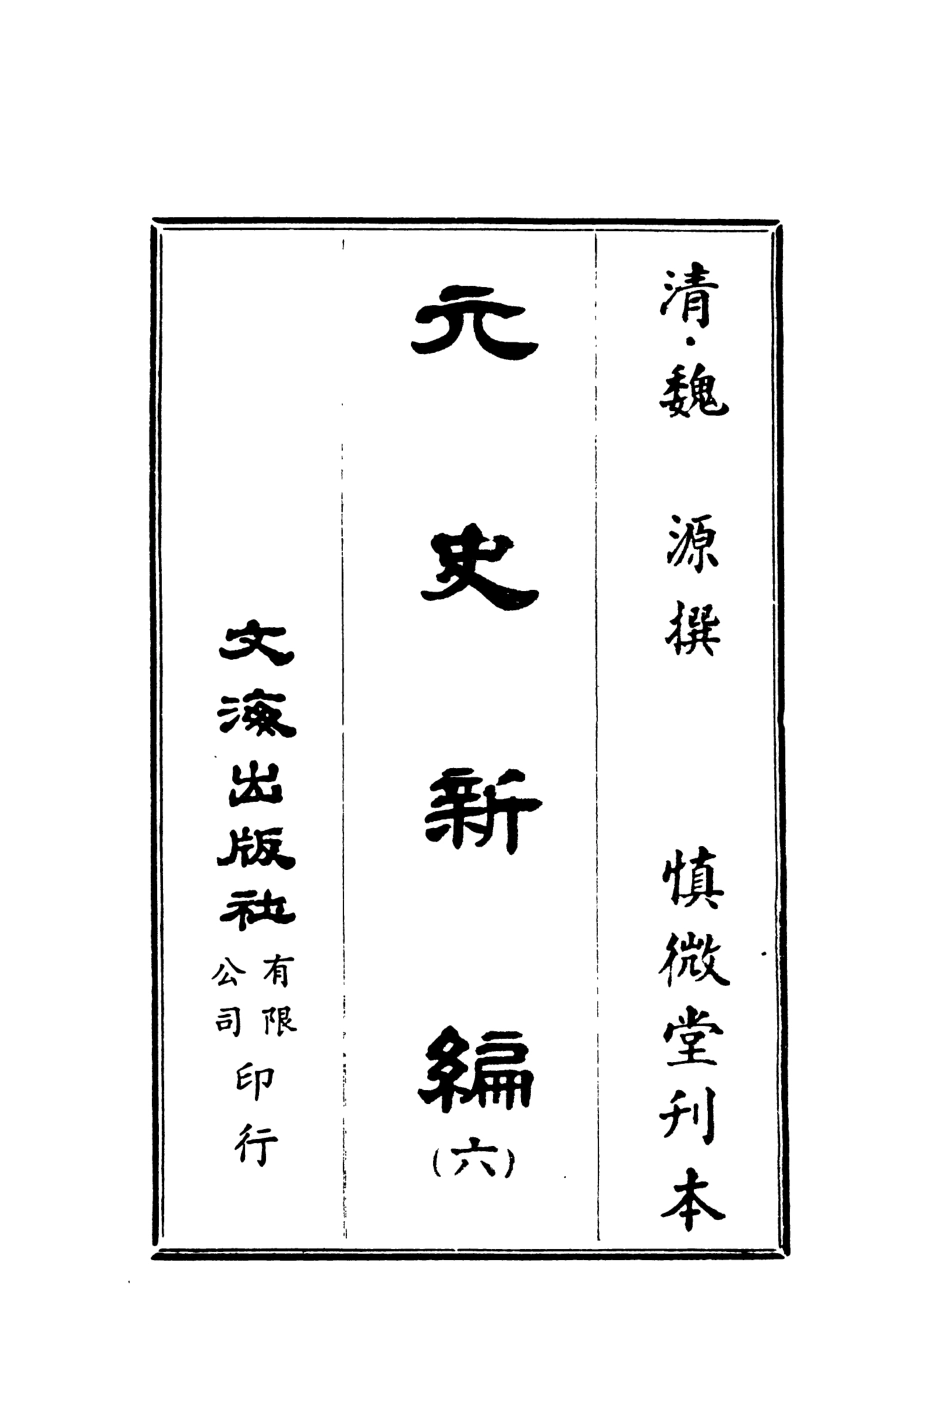 清·魏 源撰 慎微堂刊本
元史新編(六)
文海出版社有限公司印行